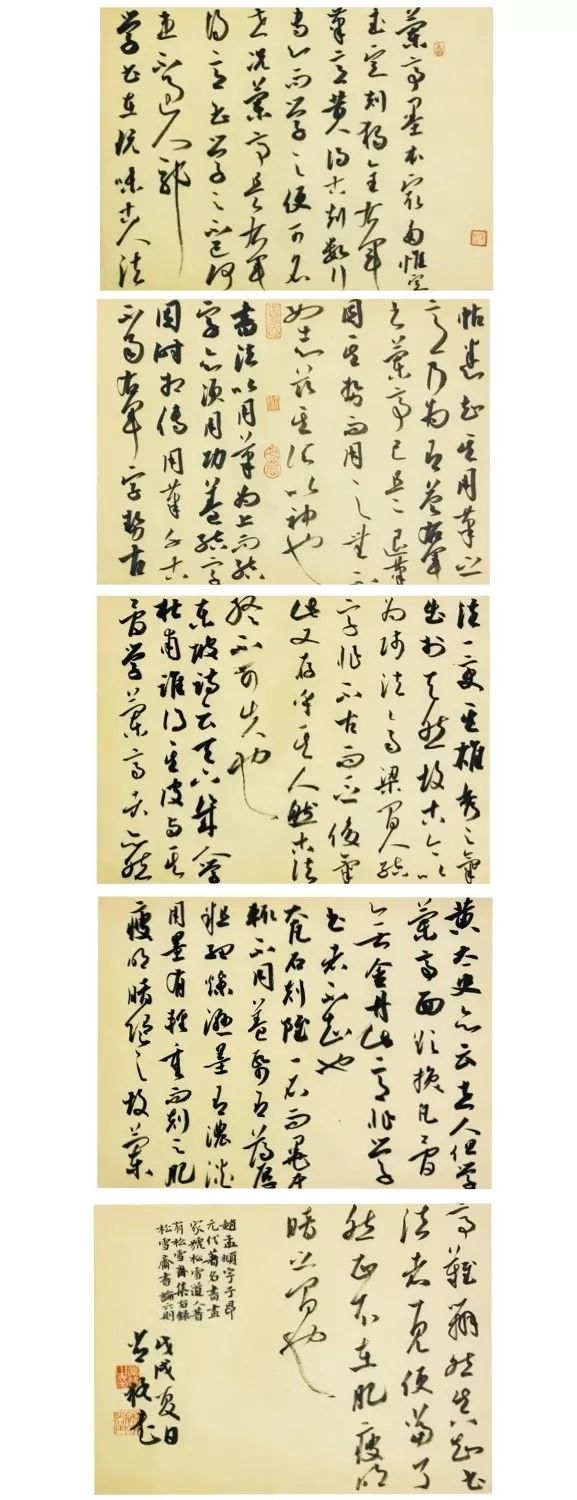 蘭亭墨本最多惟定
武定刻獨全右軍
筆意昔人得古刻數行
專心而學之便可名
世況蘭亭是右軍
得意書學之不已何
患不過人耶
學書在玩味古人法
帖悉知其用筆之
意乃為有益右軍
書蘭亭已是退筆
因其勢而用之無不
如志茲其所以神也
書法以用筆為上而結
字亦須用功蓋結字
因時相傳用筆千古
不易右軍字勢古
法一變其雄秀之氣
出於天然故古今以
為師法齊梁間人結
字非不古而乏俊氣
此又存乎其人然古法
終不可失也
東坡詩云天下幾人學
杜甫誰得其皮與其
骨學蘭亭者亦然
黃太史亦云世人但學
蘭亭面欲換凡骨
無金丹此意非學
書者不知也
大凡石刻雖一石而墨本
輒不同蓋紙有薄厚
粗細燥濕墨有濃淡
用墨有輕重而刻之肥
瘦明暗隨之故蘭
亭難辨然真知書
法者一見便當了
然政不在肥瘦明
暗之間也
趙孟頫字子昂
元代著名書畫
家號松雪道人著
有松雪齋集右錄
松雪齋書論六則
戊戌夏日